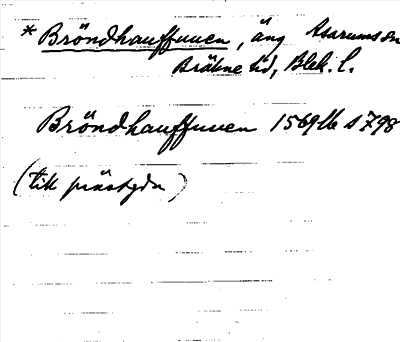 * Bröndhauffuuen, äng Asarums sn
Bräkne hd, Blek. l.
Bröndhauffuuen 1569 lb s 798
(till prästgdn)